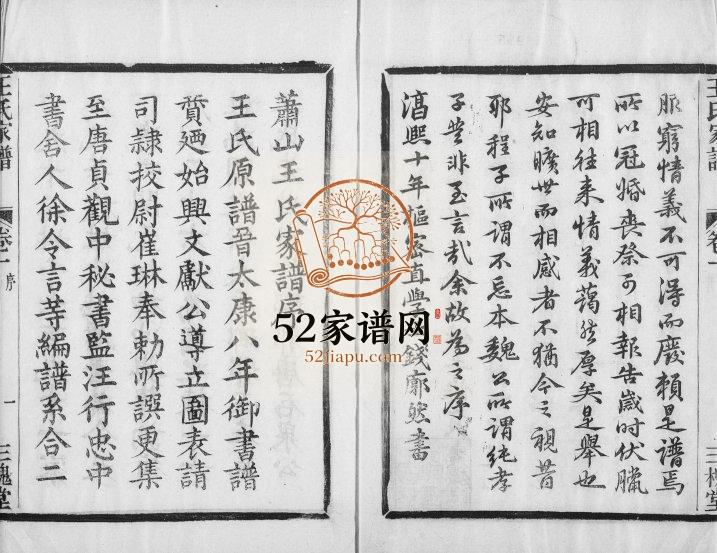 王氏家譜
卷一
三槐堂
服窮情義不可得而廢賴是譜焉
所以冠婚喪祭可相報告歲時伏臘
可相往来情義藹然厚矣是舉也
安知曠世而相感者不猶今之視昔
耶程子所謂不忘本魏公所謂純孝
子豈非至言哉余故為之序
淳熙十年樞密直學錢廓然書
蕭山王氏家譜序
王氏原譜晉太康八年御書譜
賛廼始興文獻公導立圖表請
司隸挍尉崔琳奉勅所譔更集
至唐貞觀中秘書監汪行忠中
書舍人徐令言荨編譜系合二
王氏家譜
卷一
序
一
三槐堂
52家谱网
52jiapu.com